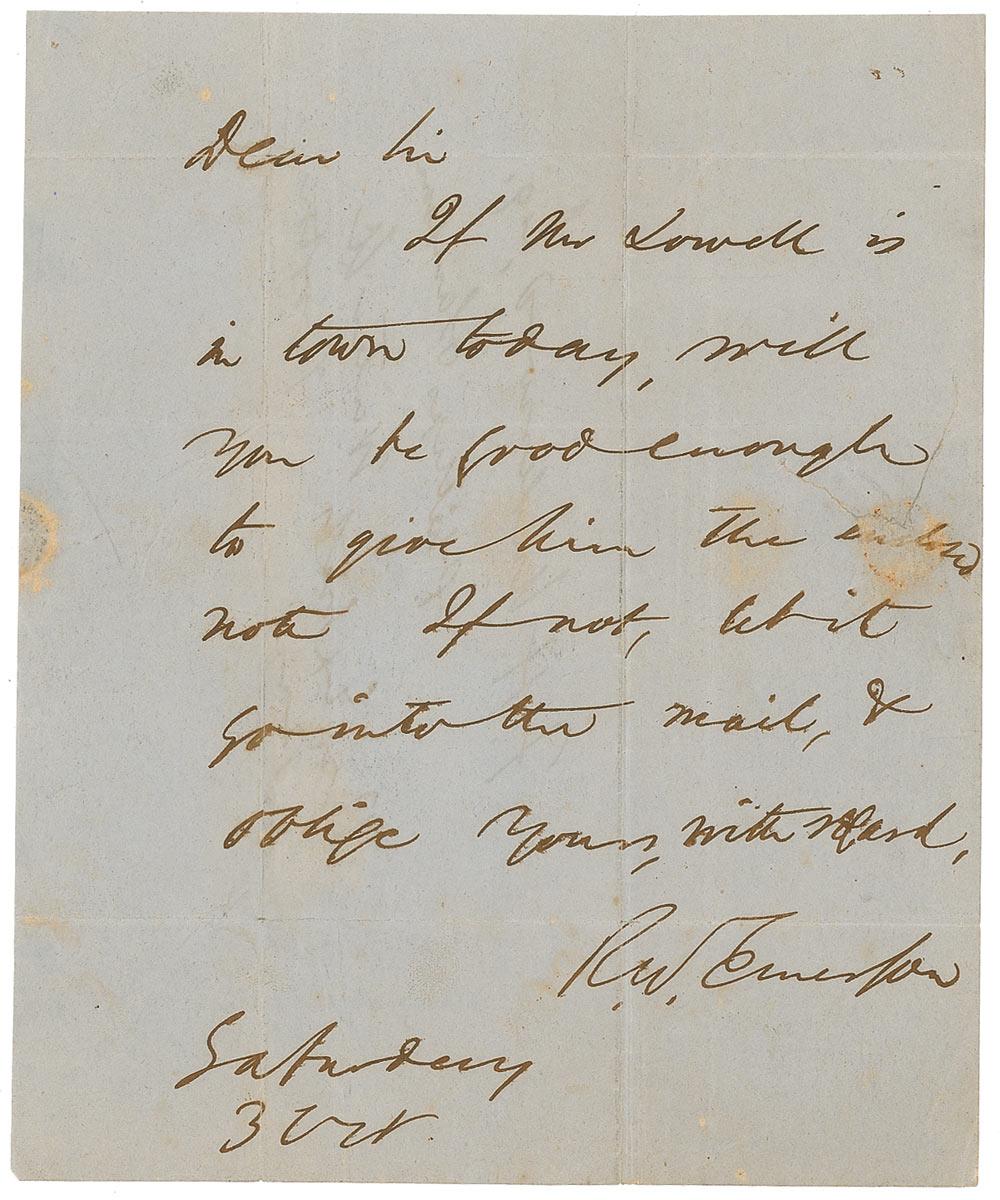 Dear Sir
If Mr Lowell is
in town today, will
you be good enough
to give him the enclosed
note If not, let it
go into the mail, &
oblige Yours, with regard,
R. W. Emerson
Saturday
3 Oct.